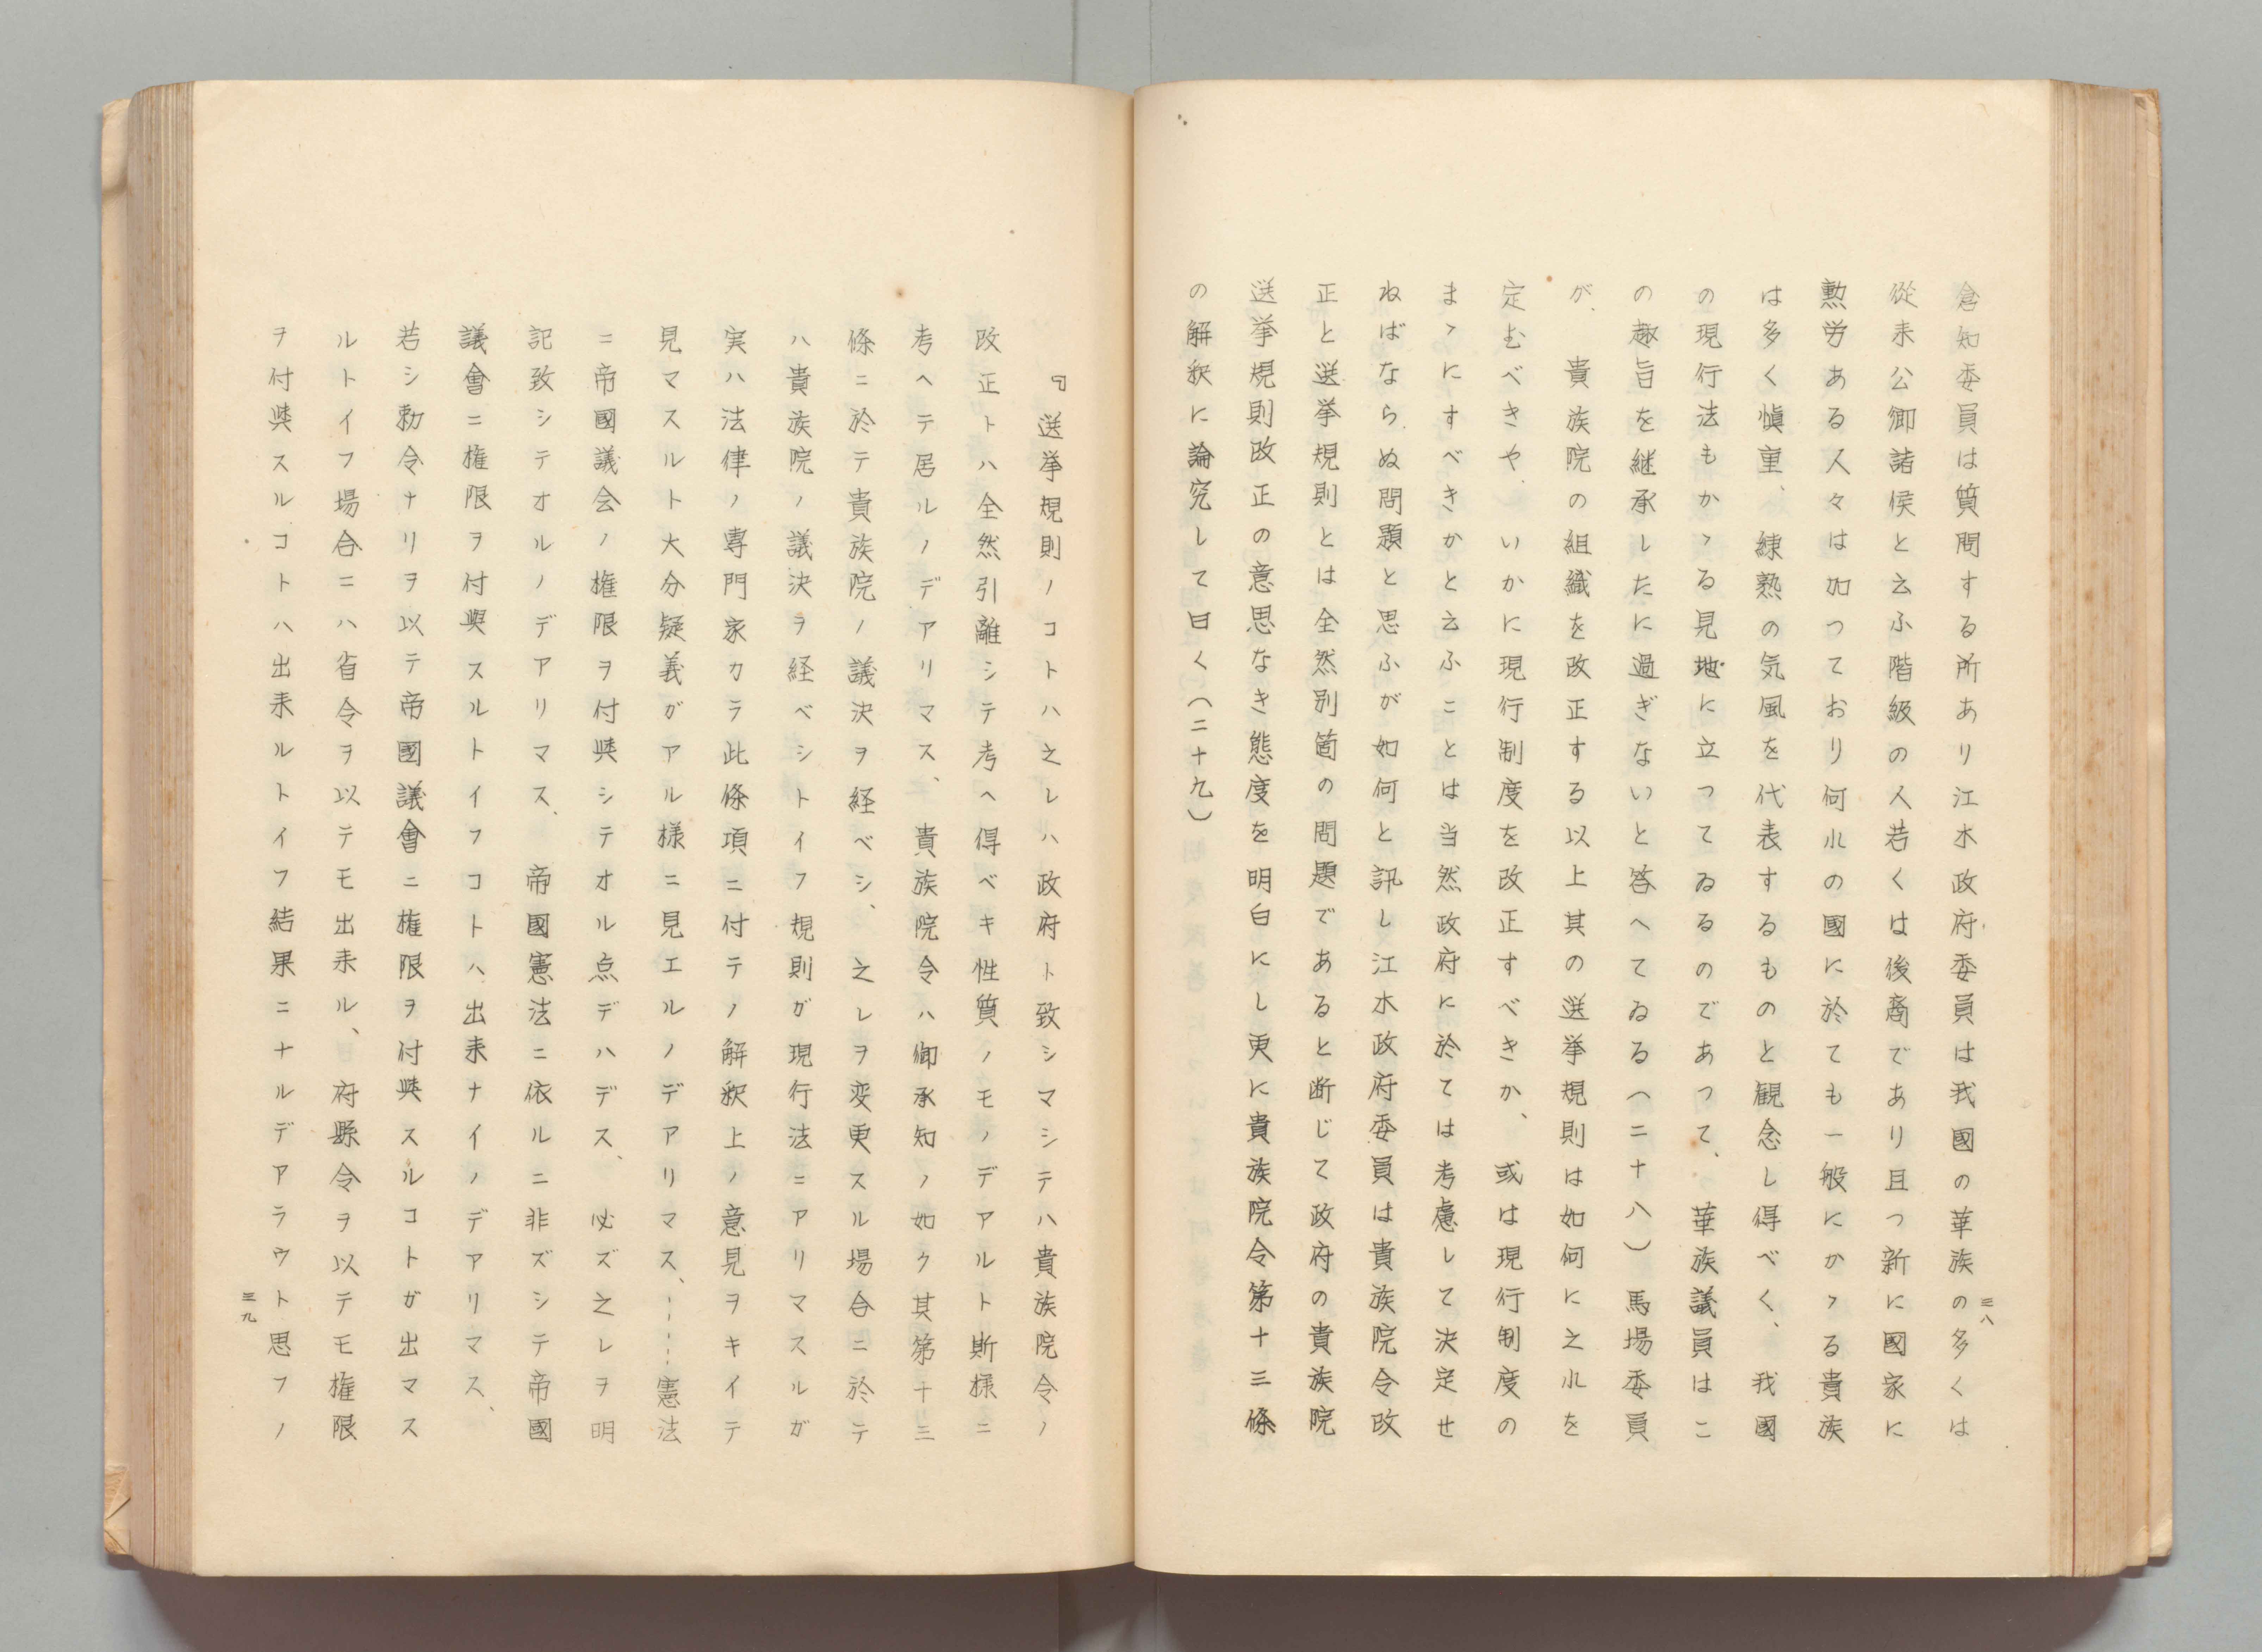 倉知委員は質問する所あり江木政府委員は我國の華族の多くは
從来公卿諸侯と云ふ階級の人若くは後裔であり且つ新に國家に
勲労ある人々は加つており何れの國に於ても一般にかゝる貴族
は多く愼重、練熟の気風を代表するものと観念し得べく、我國
の現行法もかゝる見地に立つてゐるのであつて、華族議員はこ
の趣旨を継承したに過ぎないと答へてゐる（二十八）馬場委員
が、貴族院の組織を改正する以上其の選挙規則は如何に之れを
定むべきや、いかに現行制度を改正すべきか、或は現行制度の
まゝにすべきかと云ふことは当然政府に於ては考慮して決定せ
ねばならぬ問題と思ふが如何と訊し江木政府委員は貴族院令改
正と選挙規則とは全然別箇の問題であると断じて政府の貴族院
送挙規則改正の意思なき態度を明白にし更に貴族院令第十三條
の解釈に論究して曰く（二十九）
三八
『選挙規則ノコトハ之レハ政府ト致シマシテハ貴族院令ノ
改正トハ全然引離シテ考ヘ得ベキ性質ノモノデアルト斯様ニ
考ヘテ居ルノデアリマス、貴族院令ハ御承知ノ如ク其第十三
條ニ於テ貴族院ノ議決ヲ経ベシ、之レヲ変更スル場合ニ於テ
ハ貴族院ノ議決ヲ経ベシトイフ規則ガ現行法ニアリマスルガ
実ハ法律ノ専門家カラ此條項ニ付テノ解釈上ノ意見ヲキイテ
見マスルト大分疑義ガアル様ニ見エルノデアリマス、……憲法
ニ帝國議会ノ権限ヲ付與シテオル点デハデス、必ズ之レヲ明
記致シテオルノデアリマス、帝國憲法ニ依ルニ非ズシテ帝國
議會ニ権限ヲ付與スルトイフコトハ出来ナイノデアリマス、
若シ勅令ナリヲ以テ帝國議會ニ権限ヲ付與スルコトガ出マス
ルトイフ場合ニハ省令ヲ以テモ出来ル、府縣令ヲ以テモ権限
ヲ付與スルコトハ出来ルトイフ結果ニナルデアラウト思フノ
三九